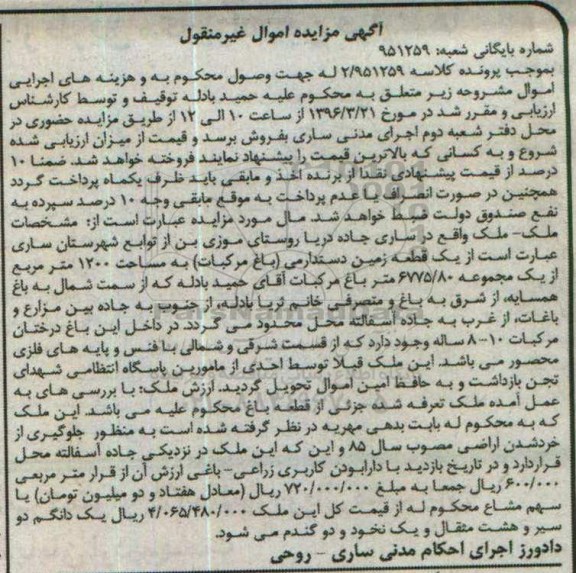 آگهی مزایده اموال غیرمنقول
شماره بایگانی شعبه: ۹۵۱۲۵۹
بموجب پرونده کلاسه ۲/۹۵۱۲۵۹ له جهت وصول محکوم به و هزینه های اجرایی
اموال مشروحه زیر متعلق به محکوم علیه حمید بادله توقیف و توسط کارشناس
ارزیابی و مقرر شد در مورخ ۱۳۹۶/۳/۲۱ از ساعت ۱۰ الی ۱۲ از طریق مزایده حضوری در
محل دفتر شعبه دوم اجرای مدنی ساری بفروش برسد و قیمت از میزان ارزیابی شده
شروع و به کسانی که بالاترین قیمت را پیشنهاد نمایند فروخته خواهد شد. ضمنا ۱۰
درصد از قیمت پیشنهادی نقدا از برنده اخذ و مابقی باید ظرف یکماه پرداخت گردد
همچنین در صورت انصراف یا عدم پرداخت به موقع مابقی وجه ۱۰ درصد سپرده به
نفع صندوق دولت ضبط خواهد شد. مال مورد مزایده عبارت است از: مشخصات
ملک- ملک واقع در ساری جاده دریا روستای موزی بن از توابع شهرستان ساری
عبارت است از یک قطعه زمین دستدارمی (باغ مرکبات) به مساحت ۱۲۰۰ متر مربع
از یک مجموعه ۶۷۷۵/۸۰ متر باغ مرکبات آقای حمید بادله که از سمت شمال به باغ
همسایه، از شرق به باغ و متصرفی خانم ثریا بادله، از جنوب به جاده بین مزارع و
باغات، از غرب به جاده آسفالته محل محدود می گردد. در داخل این باغ درختان
مرکبات ۱۰-۸ ساله وجود دارد که از قسمت شرقی و شمالی با فنس و پایه های فلزی
محصور می باشد. این ملک قبلا توسط احدی از مامورین پاسگاه انتظامی شهدای
تجن بازداشت و به حافظ امین اموال تحویل گردید. ارزش ملک: با بررسی های به
عمل آمده ملک تعرفه شده جزئی از قطعه باغ محکوم علیه می باشد. این ملک
که به محکوم له بابت بدهی مهریه در نظر گرفته شده است به منظور جلوگیری از
خردشدن اراضی مصوب سال ۸۵ و این که این ملک در نزدیکی جاده آسفالته محل
قراردارد و در تاریخ بازدید با دارابودن کاربری زراعی- باغی ارزش آن از قرار متر مربعی
۶۰۰/۰۰۰ ریال جمعا به مبلغ ۷۲۰/۰۰۰/۰۰۰ ریال (معادل هفتاد و دو میلیون تومان) یا
سهم مشاع محکوم له از قیمت کل این ملک ۴/۰۶۵/۴۸۰/۰۰۰ ریال یک دانگم دو
سیر و هشت مثقال و یک نخود و دو گندم می شود.
دادورز اجرای احکام مدنی ساری - روحی